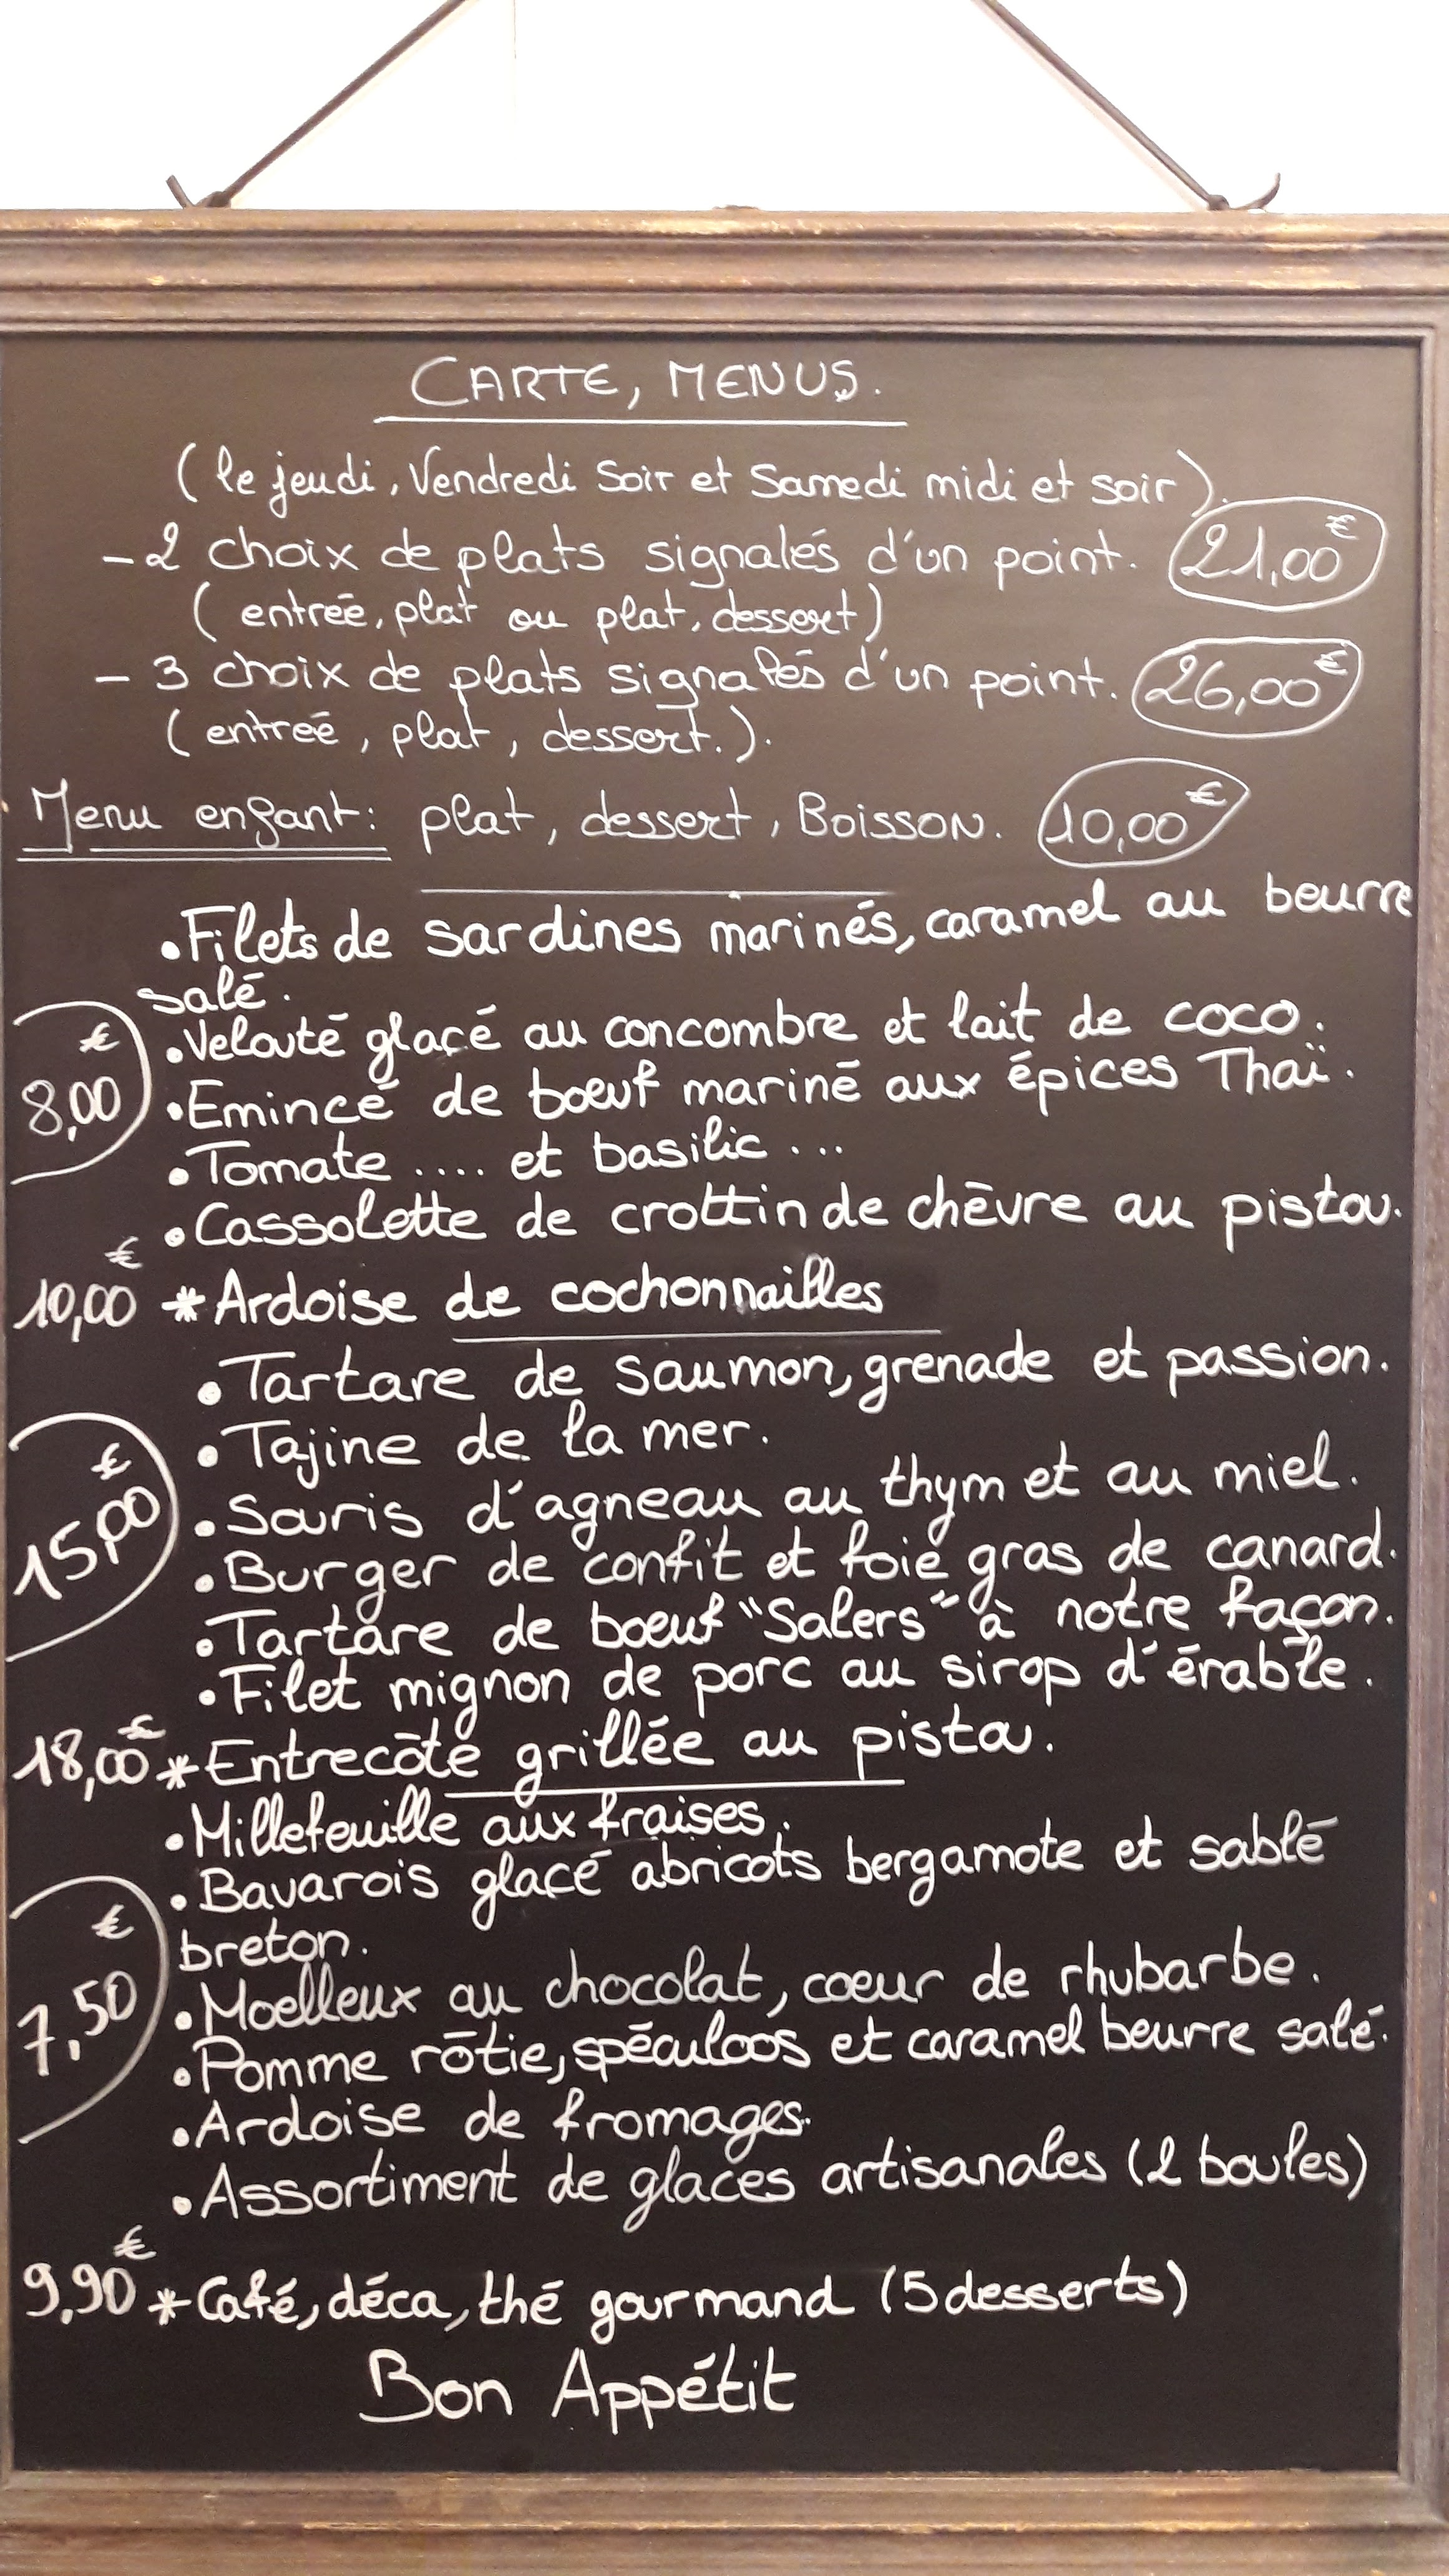 CARTE, MENUS.
(le jeudi, Vendredi Soir et Samedi midi et soir).
- 2 choix de plats signalés d'un point. 21,00€
(entrée, plat ou plat, dessert)
- 3 choix de plats signalés d'un point. 26,00€
(entreé, plat, dessert.).
Menu enfant: plat, dessert, Boisson. 10,00€
•Filets de sardines marinés, caramel au beurre
salé.
•Velouté glacé au concombre et lait de coco.
8,00€ •Emincé de boeuf mariné aux épices Thaï.
•Tomate .... et basilic ...
•Cassolette de crottin de chèvre au pistou.
10,00€ *Ardoise de cochonnailles
•Tartare de saumon, grenade et passion.
•Tajine de la mer.
15,00€ •Souris d'agneau au thym et au miel.
•Burger de confit et foie gras de canard.
•Tartare de boeuf "Salers" à notre façon.
•Filet mignon de porc au sirop d'érable.
18,00€ *Entrecôte grillée au pistou.
•Millefeuille aux fraises.
•Bavarois glacé abricots bergamote et sablé
breton.
7,50€ •Moelleux au chocolat, coeur de rhubarbe.
•Pomme rôtie, spéculoos et caramel beurre salé.
•Ardoise de fromages.
•Assortiment de glaces artisanales (2 boules)
9,90€ *Café, déca, thé gourmand (5 desserts)
Bon Appétit